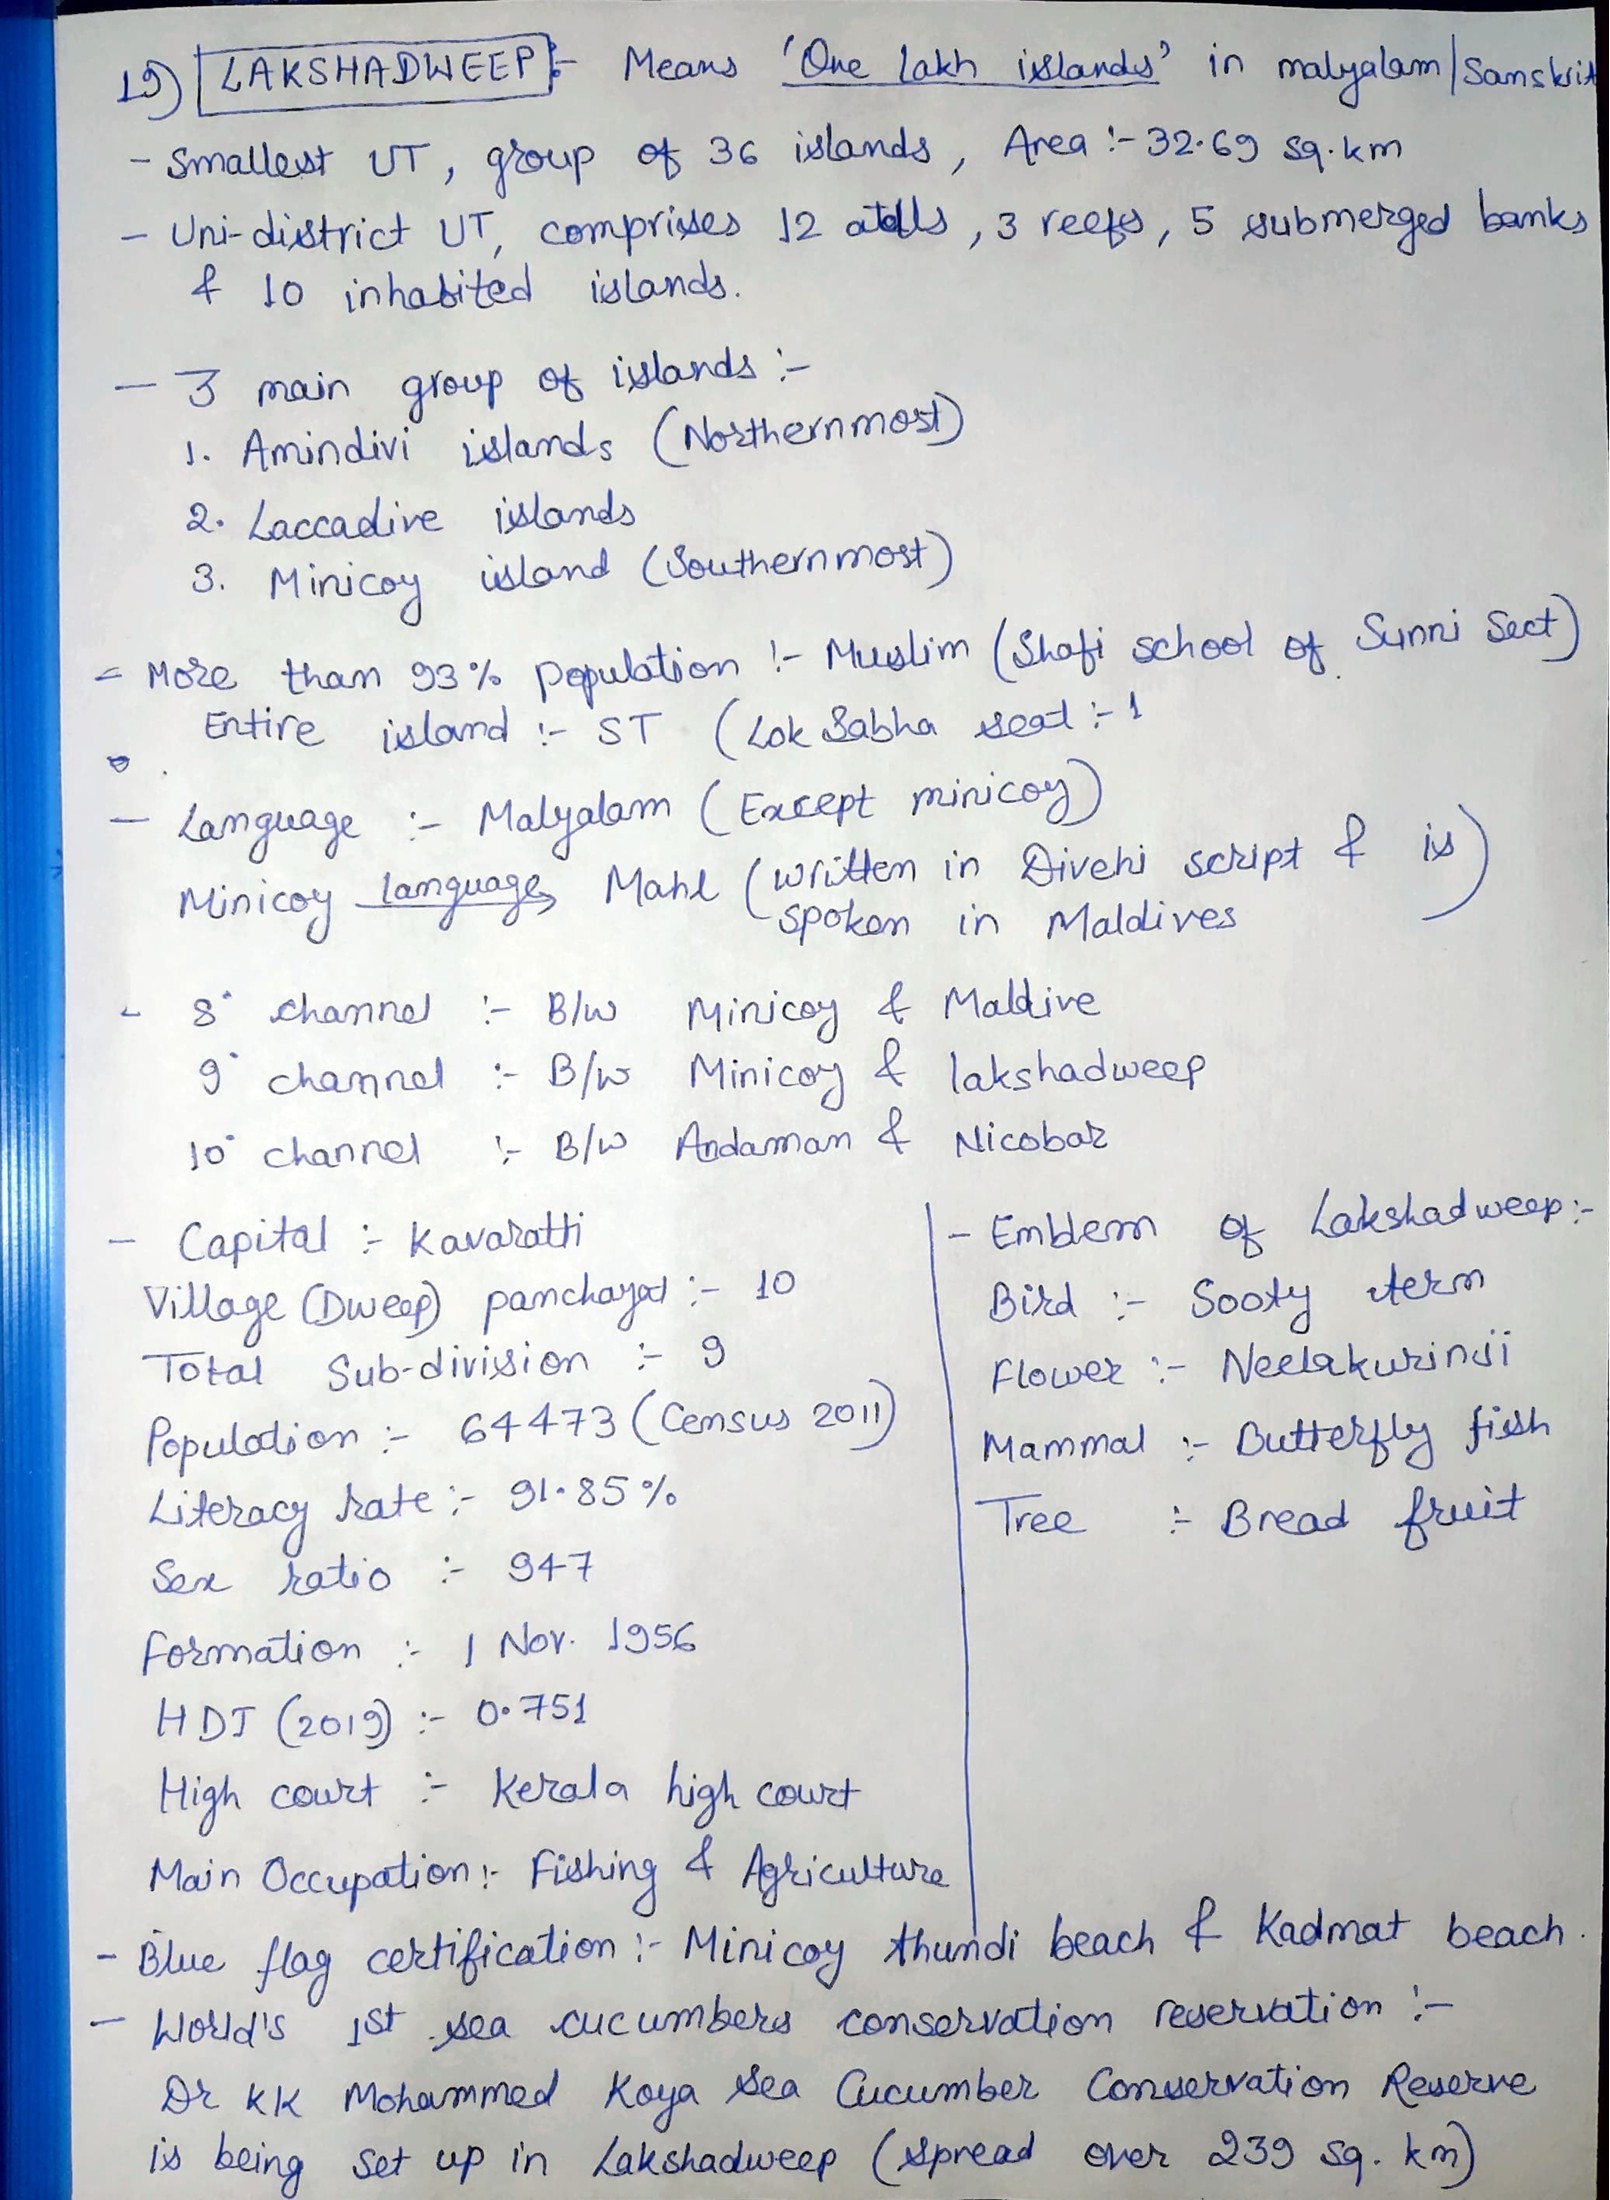 19) LAKSHADWEEP :- Means 'One lakh islands' in malyalam/Sanskrit
- Smallest UT, group of 36 islands, Area :- 32.69 sq.km
- Uni-district UT, comprises 12 atolls, 3 reefs, 5 submerged banks
& 10 inhabited islands.
- 3 main group of islands :-
1. Amindivi islands (Northernmost)
2. Laccadive islands
3. Minicoy island (Southernmost)
- More than 93% population :- Muslim (Shafi school of Sunni Sect)
Entire island :- ST (Lok Sabha seat :- 1
- Language :- Malyalam (Except minicoy)
Minicoy language, Mahl (written in Divehi script & is
spoken in Maldives)
- 8° channel :- B/w Minicoy & Maldive
9° channel :- B/w Minicoy & lakshadweep
10° channel :- B/w Andaman & Nicobar
- Capital :- Kavaratti
Village (Dweep) panchayat :- 10
Total Sub-division :- 9
Population :- 64473 (Census 2011)
Literacy rate :- 91.85%
Sex ratio :- 947
Formation :- 1 Nov. 1956
HDI (2019) :- 0.751
High court :- Kerala high court
Main Occupation :- Fishing & Agriculture
- Emblem of Lakshadweep :-
Bird :- Sooty term
Flower :- Neelakurinji
Mammal :- Butterfly fish
Tree :- Bread fruit
- Blue flag certification :- Minicoy thundi beach & Kadmat beach.
- World's 1st sea cucumbers conservation reservation :-
Dr KK Mohammed Koya Sea Cucumber Conservation Reserve
is being set up in Lakshadweep (spread over 239 sq. km)